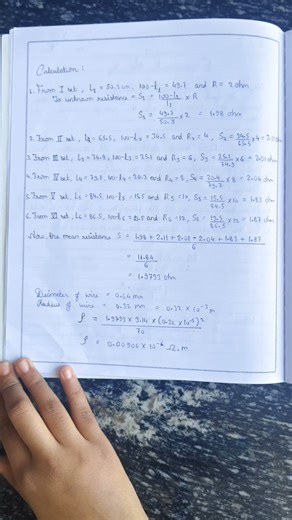 Calculation :
1. From I set, l₁ = 50.3 cm, 100-l₁ = 49.7 and R = 2 ohm
The unknown resistance = S₁ = (100-l₁)/l₁ × R
S₁ = 49.7/50.3 × 2 = 1.98 ohm
2. From II set, l₂ = 65.5, 100-l₂ = 34.5 and R₂ = 4, S₂ = 34.5/65.5 × 4 = 2.11 ohm
3. From III set, l₃ = 74.9, 100-l₃ = 25.1 and R₃ = 6, S₃ = 25.1/74.9 × 6 = 2.01 ohm
4. From IV set, l₄ = 79.7, 100-l₄ = 20.3 and R₄ = 8, S₄ = 20.4/79.7 × 8 = 2.04 ohm
5. From V set, l₅ = 84.5, 100-l₅ = 15.5 and R₅ = 10, S₅ = 15.5/84.5 × 10 = 1.83 ohm
6. From VI set, l₆ = 86.5, 100-l₆ = 13.5 and R₆ = 12, S₆ = 13.5/86.5 × 12 = 1.87 ohm
Now, the mean resistance S = (1.98 + 2.11 + 2.01 + 2.04 + 1.83 + 1.87)/6
= 11.84/6
= 1.9733 ohm
Diameter of wire = 0.64 mm
Radius of wire = 0.32 mm = 0.32 × 10⁻³ m
ρ = (1.9733 × 3.14 × (0.32 × 10⁻³)²)/70
ρ = 0.00906 × 10⁻⁶ Ω.m